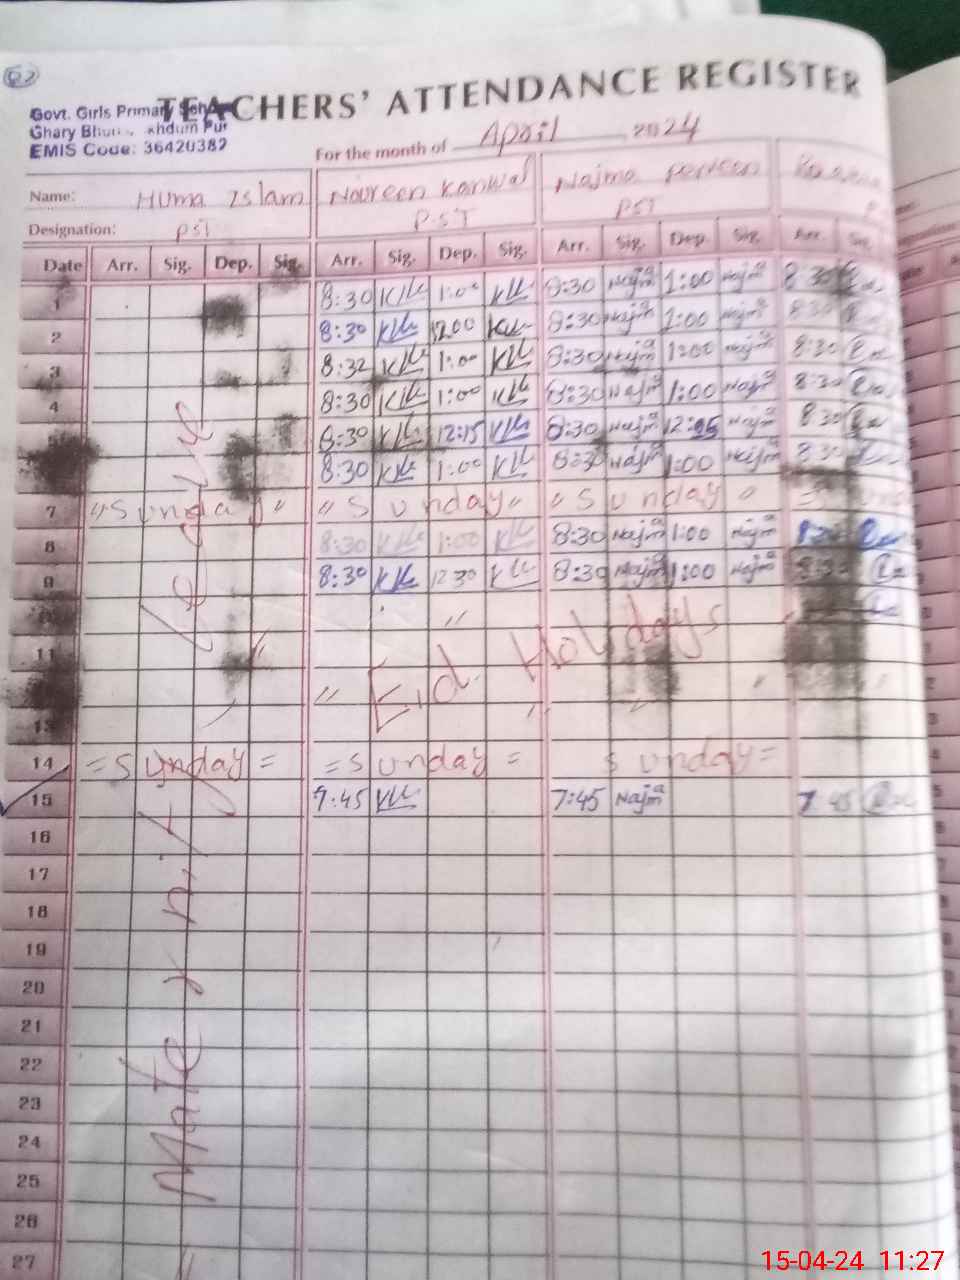 TEACHERS' ATTENDANCE REGISTER
Govt. Girls Primary
Ghary
EMIS Code: 36420382
For the month of April 2024
Name: Huma Islam Noureen Kanwal Najma Perveen
Designation: PST PST PST
Date Arr. Sig. Dep. Sig. Arr. Sig. Dep. Sig. Arr. Sig. Dep. Sig. Arr. Sig.
1 8:30 1:00 8:30 Najma 1:00 Najma 8:30
2 8:30 12:00 8:30 Najma 1:00 Najma 8:30
3 8:32 1:00 8:30 Najma 1:00 Najma 8:30
4 8:30 1:00 8:30 Najma 1:00 Najma 8:30
8:30 12:15 8:30 Najma 12:05 Najma 8:30
8:30 1:00 8:30 Najma 1:00 Najma 8:30
7 "Sunday" "Sunday" "Sunday"
8 8:30 1:00 8:30 Najma 1:00 Najma
9 8:30 12:30 8:30 Najma 1:00 Najma
11 Eid Holidays
13
14 =Sunday= =Sunday= Sunday=
15 7:45 7:45 Najma 7:45
16
17
18
19
20
21
22
23
24
25
26
27
Maternity leave
15-04-24 11:27